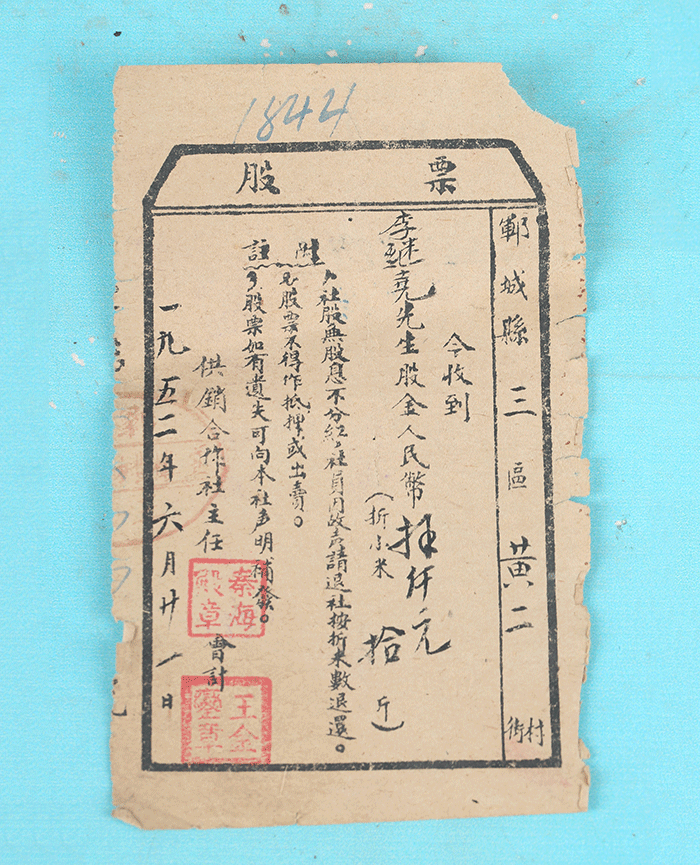 1844
股票
鄆城縣三區黃二街村
今收到
李継尭先生股金人民幣拝仟元
（折小米拾斤）
附註
1，社股無股息不分紅，社員因故声請退社按折米數退還。
2，股票不得作抵押或出賣。
3，股票如有遺失可向本社声明補發。
供銷合作社主任
秦海殿章
會計
王金
一九五二年六月廿一日